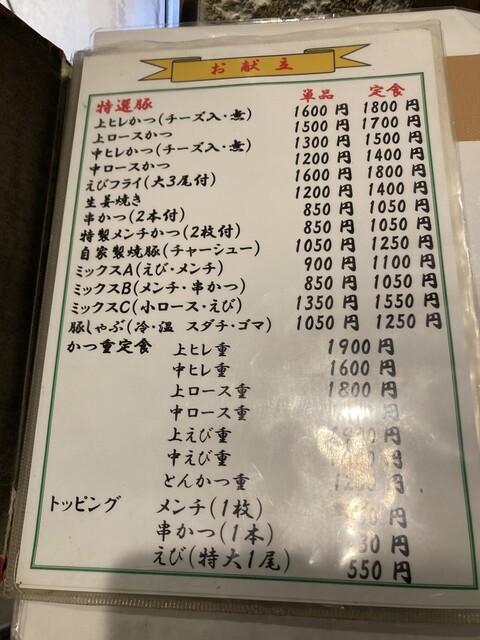 お献立
特選豚 単品 定食
上ヒレかつ(チーズ入・無) 1600円 1800円
上ロースかつ 1500円 1700円
中ヒレかつ(チーズ入・無) 1300円 1500円
中ロースかつ 1200円 1400円
えびフライ(大3尾付) 1600円 1800円
生姜焼き 1200円 1400円
串かつ(2本付) 850円 1050円
特製メンチかつ(2枚付) 850円 1050円
自家製焼豚(チャーシュー) 1050円 1250円
ミックスA(えび・メンチ) 900円 1100円
ミックスB(メンチ・串かつ) 850円 1050円
ミックスC(小ロース・えび) 1350円 1550円
豚しゃぶ(冷・温 スダチ・ゴマ) 1050円 1250円
かつ重定食 上ヒレ重 1900円
中ヒレ重 1600円
上ロース重 1800円
中ロース重 円
上えび重 円
中えび重 円
とんかつ重 円
トッピング メンチ(1枚) 円
串かつ(1本) 円
えび(特大1尾) 550円